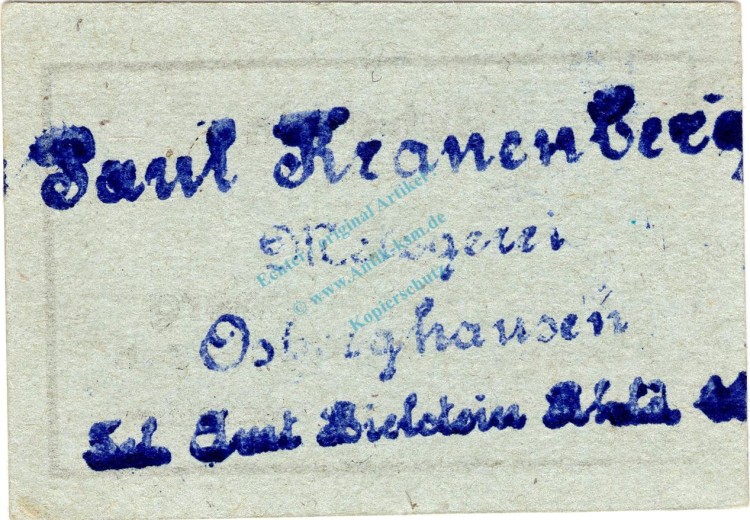 Paul Kranenberg
Metzgerei
Osberghausen
Tel. Amt Bielstein Rhld.
Echter Original Artikel
© www.Antik-ksm.de
Kopierschutz